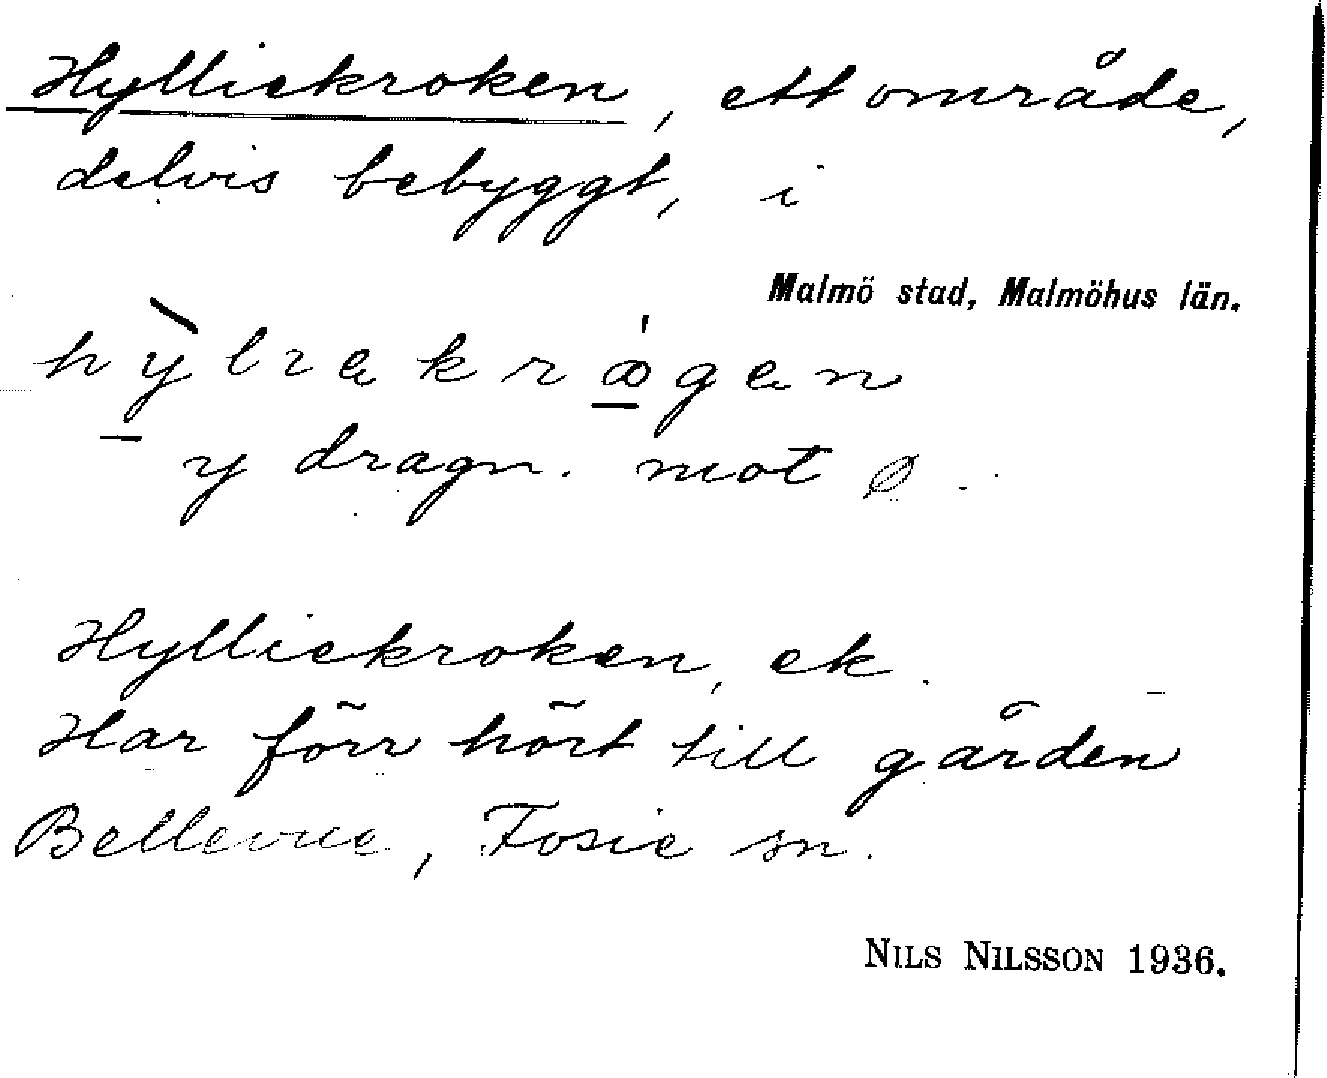 Hylliekroken, ett område,
delvis bebyggt, i
Malmö stad, Malmöhus län.
y dragn. mot ø.
Hylliekroken, ek.
Har förr hört till gården
Bellevue, Fosie sn.
NILS NILSSON 1936.